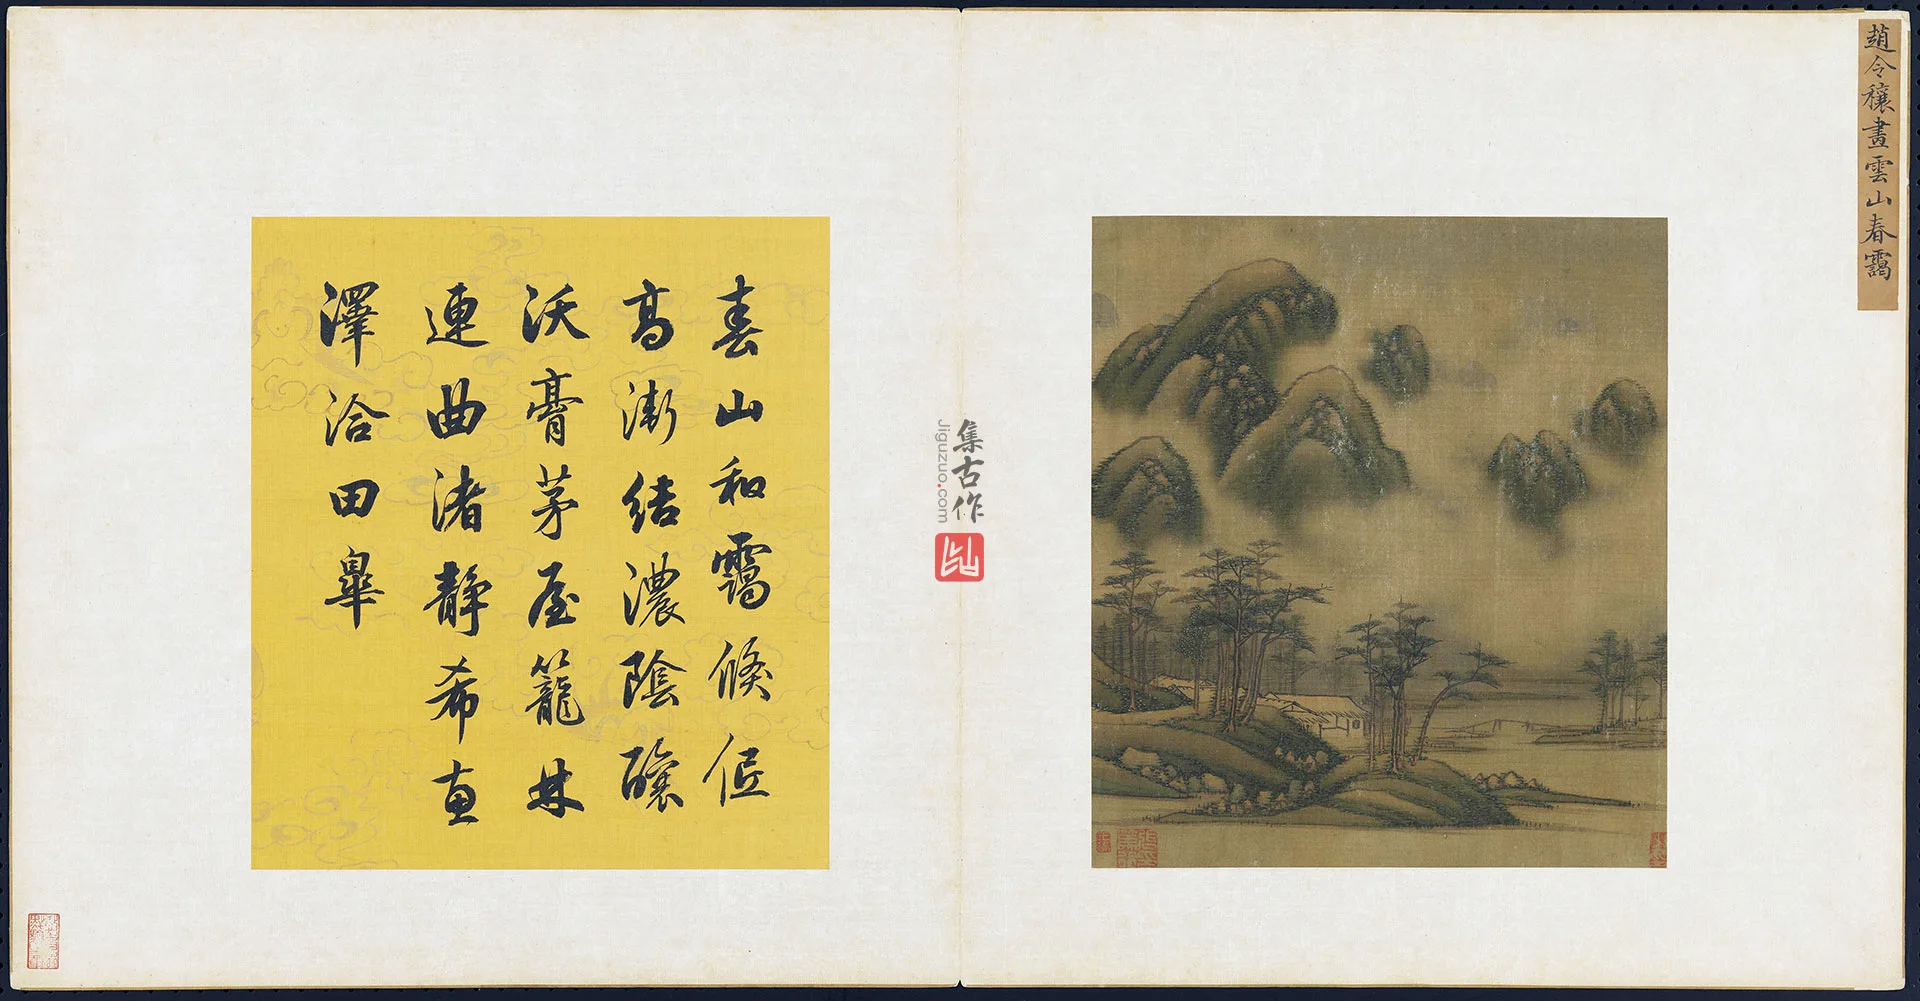 趙令穰畫雲山春靄
春山和靄倏低
高漸結濃陰釀
沃膏茅屋籠林
連曲渚靜希直
澤洽田皋
集古作
jiguzuo.com